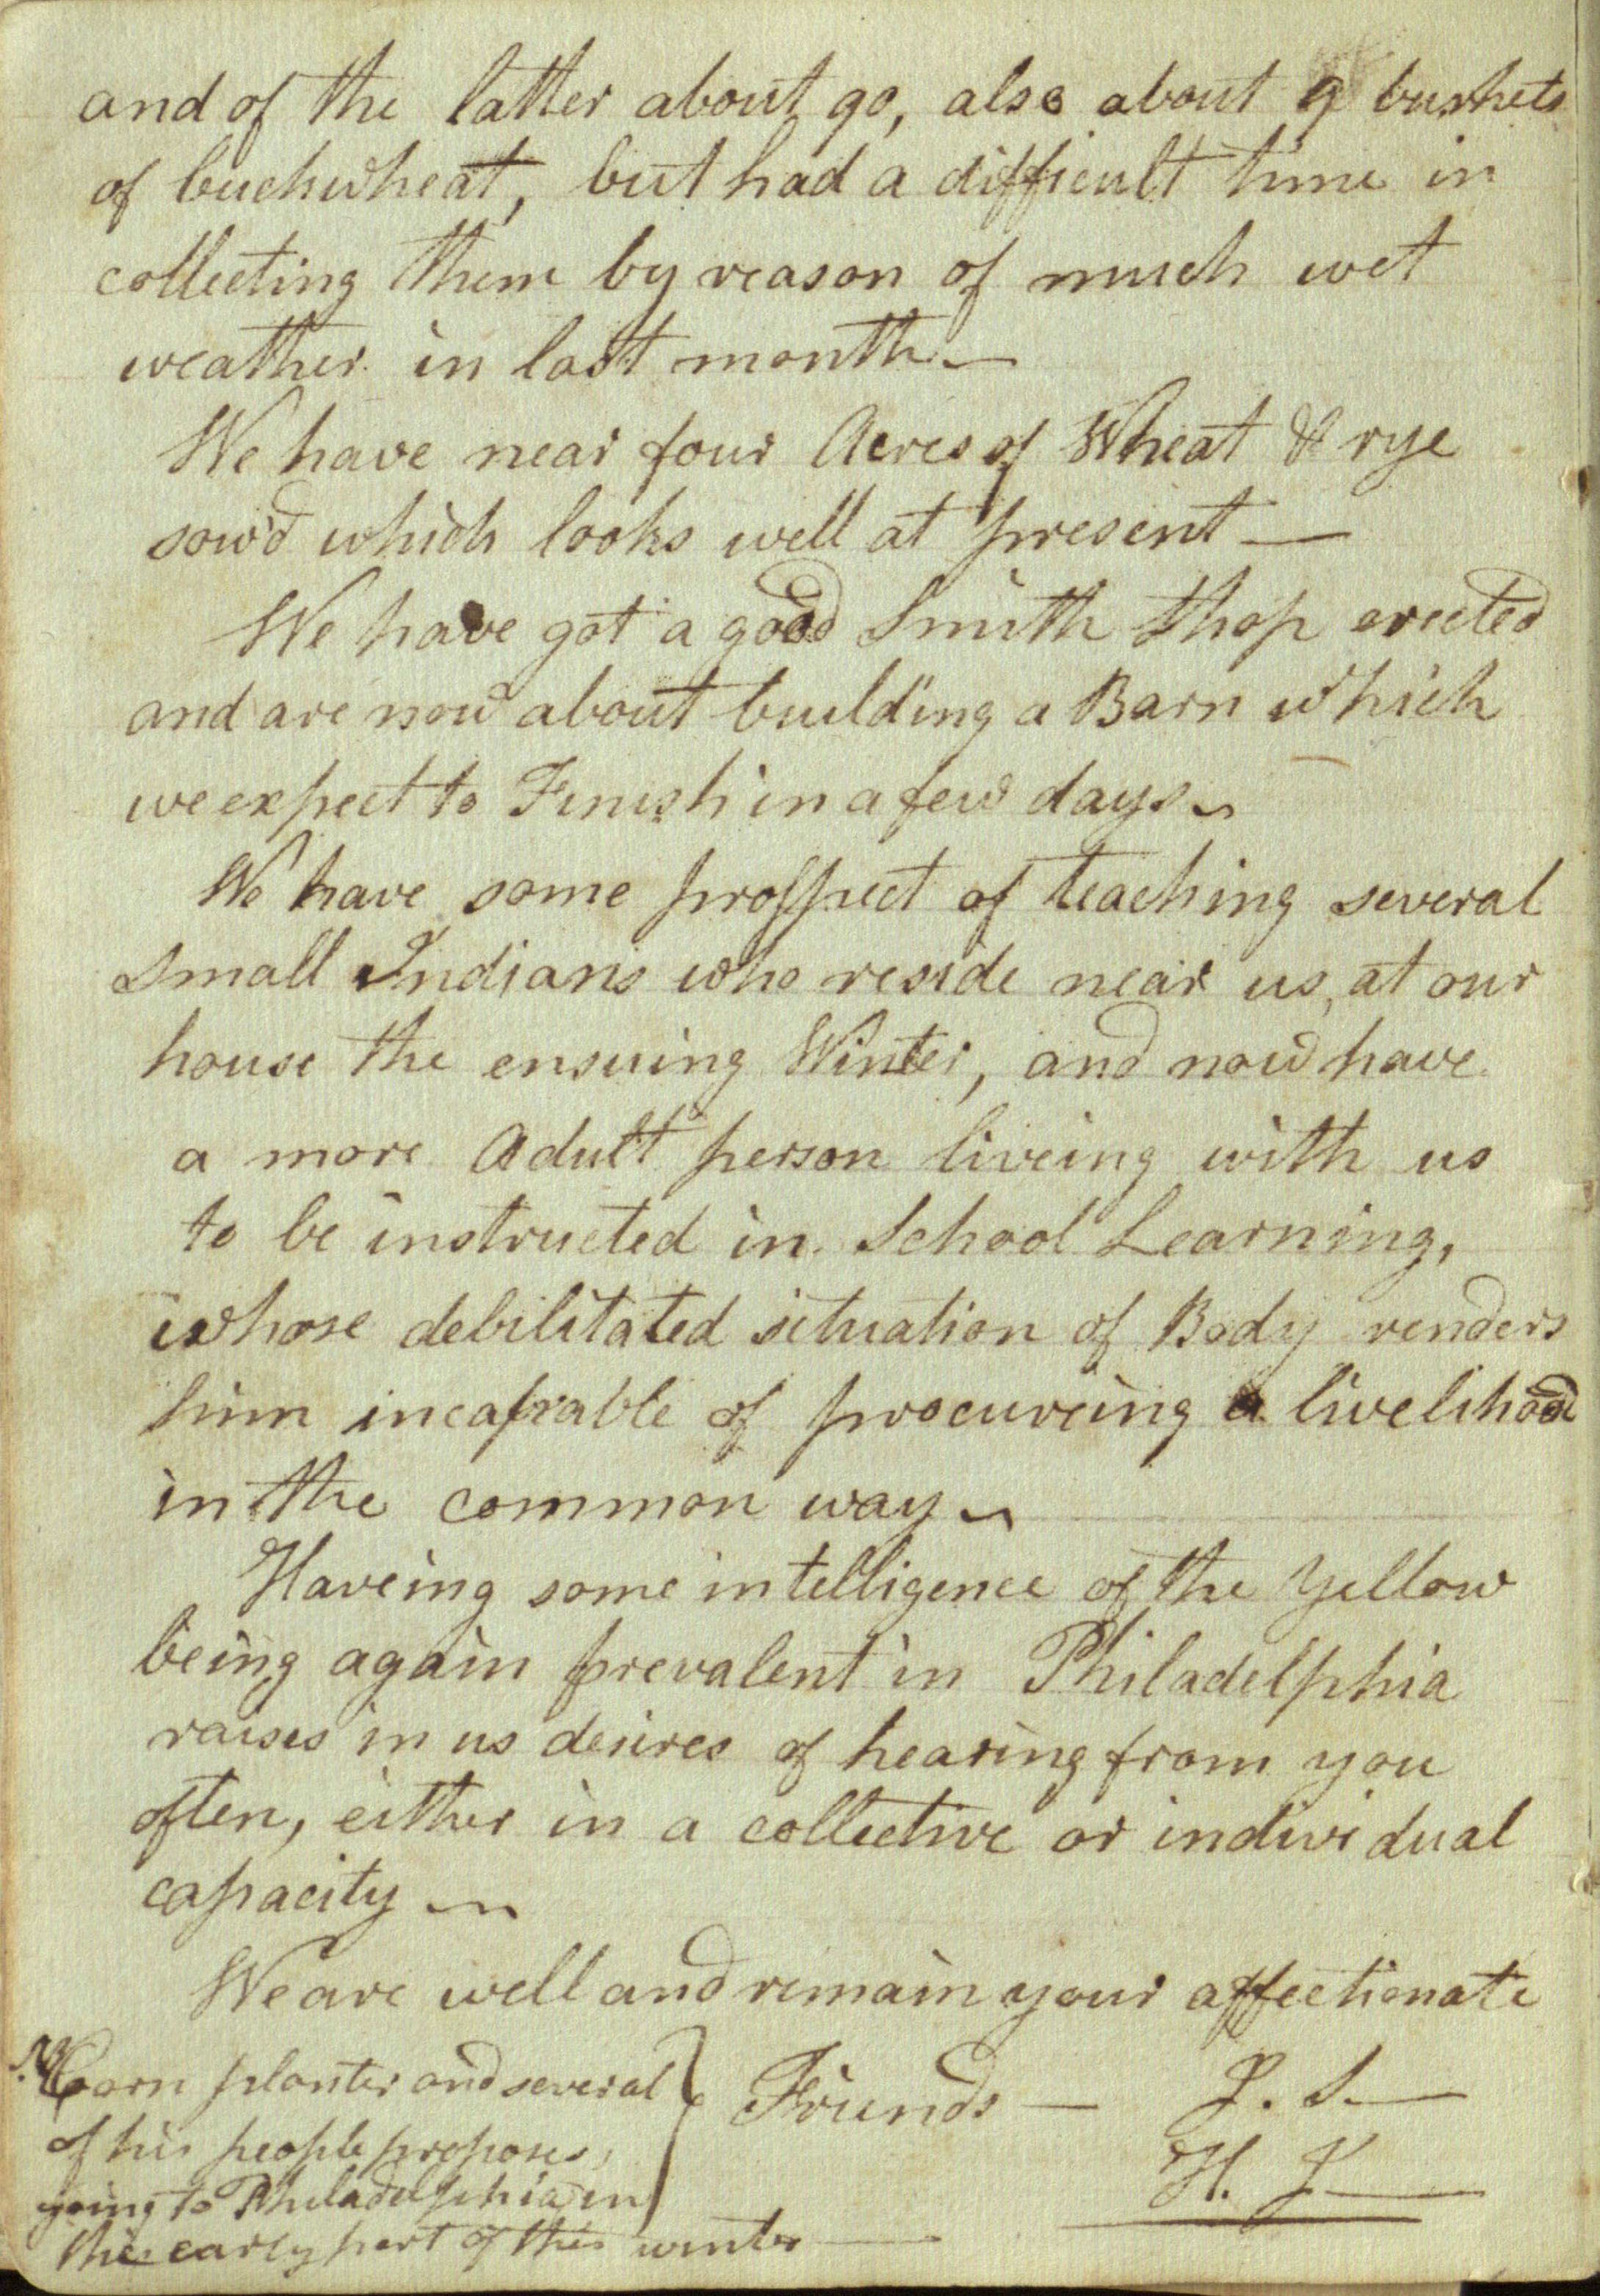 and of the latter about 90, also about 9 bushels
of buckwheat, but had a difficult time in
collecting them by reason of much wet
weather in last month —
We have near four Acres of Wheat & rye
sow'd which looks well at present —
We have got a good Smith Shop erected
and are now about building a Barn which
we expect to Finish in a few days ~
We have some prosspect of teaching several
small Indians who reside near us, at our
house the ensuing Winter, and now have
a more Adult person liveing with us
to be instructed in School Learning,
whose debilitated situation of Body renders
him incapable of procureing a livelihood
in the common way ~
Haveing some intelligence of the Yellow
being again prevalent in Philadelphia
raises in us desires of hearing from you
often, either in a collective or individual
capacity ~
We are well and remain your affectionate
Friends — J. S —
H. J —
NB Corn planter and several
of his people proposes
going to Philadelphia in
the early part of this winter —